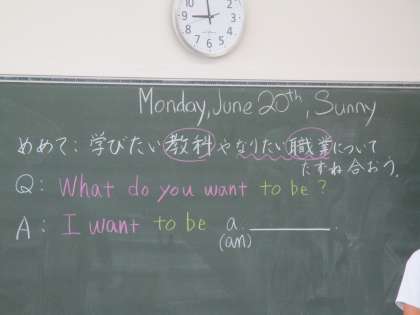 9 8 7 6 5 4 3 2
Monday, June 20th, Sunny
めあて：学びたい教科やなりたい職業について
たずね合おう。
Q: What do you want to be?
A: I want to be a ______.
(an)